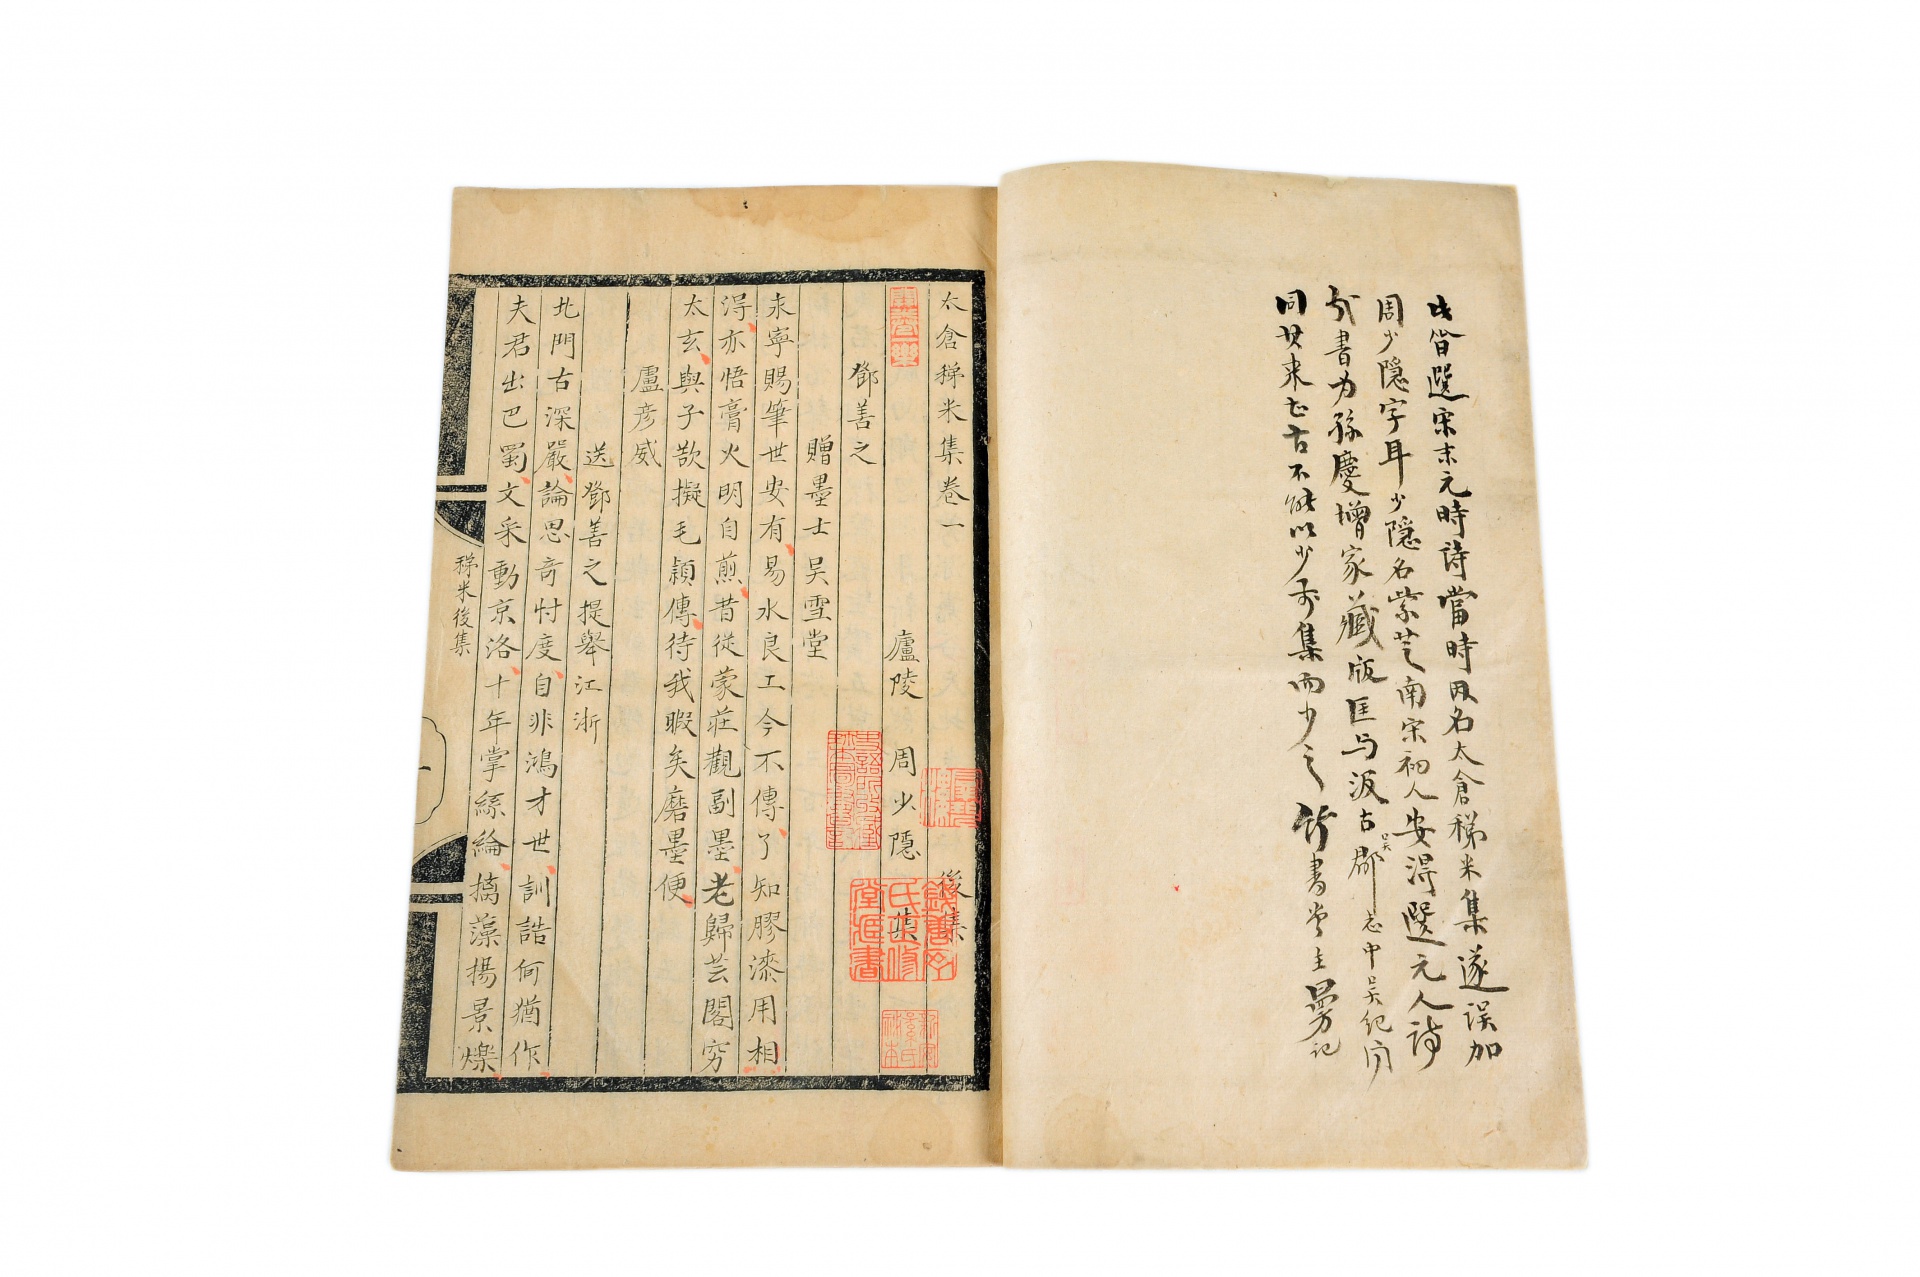 皆選宋末元時詩當時取名太倉稊米集遂誤加
周少隱字耳少隱名紫芝南宋初人安得選元人詩
書為孫慶增家藏版匡与汲古郡志中吳紀聞
吴
同其来古不能以少集而少之 竹書堂主記
太倉稊米集卷一 後集
廬陵 周少隱 集
鄧善之
贈墨士吳雪堂
求寧賜筆世安有易水良工今不傳了知膠漆用相
得亦悟膏火明自煎昔從蒙莊觀副墨老歸芸閣窮
太玄與子欲擬毛穎傳待我暇矣磨墨便
盧彦威
送鄧善之提舉江浙
北門古深嚴論思奇忖度自非鴻才世訓誥何猶作
夫君出巴蜀文采動京洛十年掌絲綸摛藻揚景爍
稊米後集
一